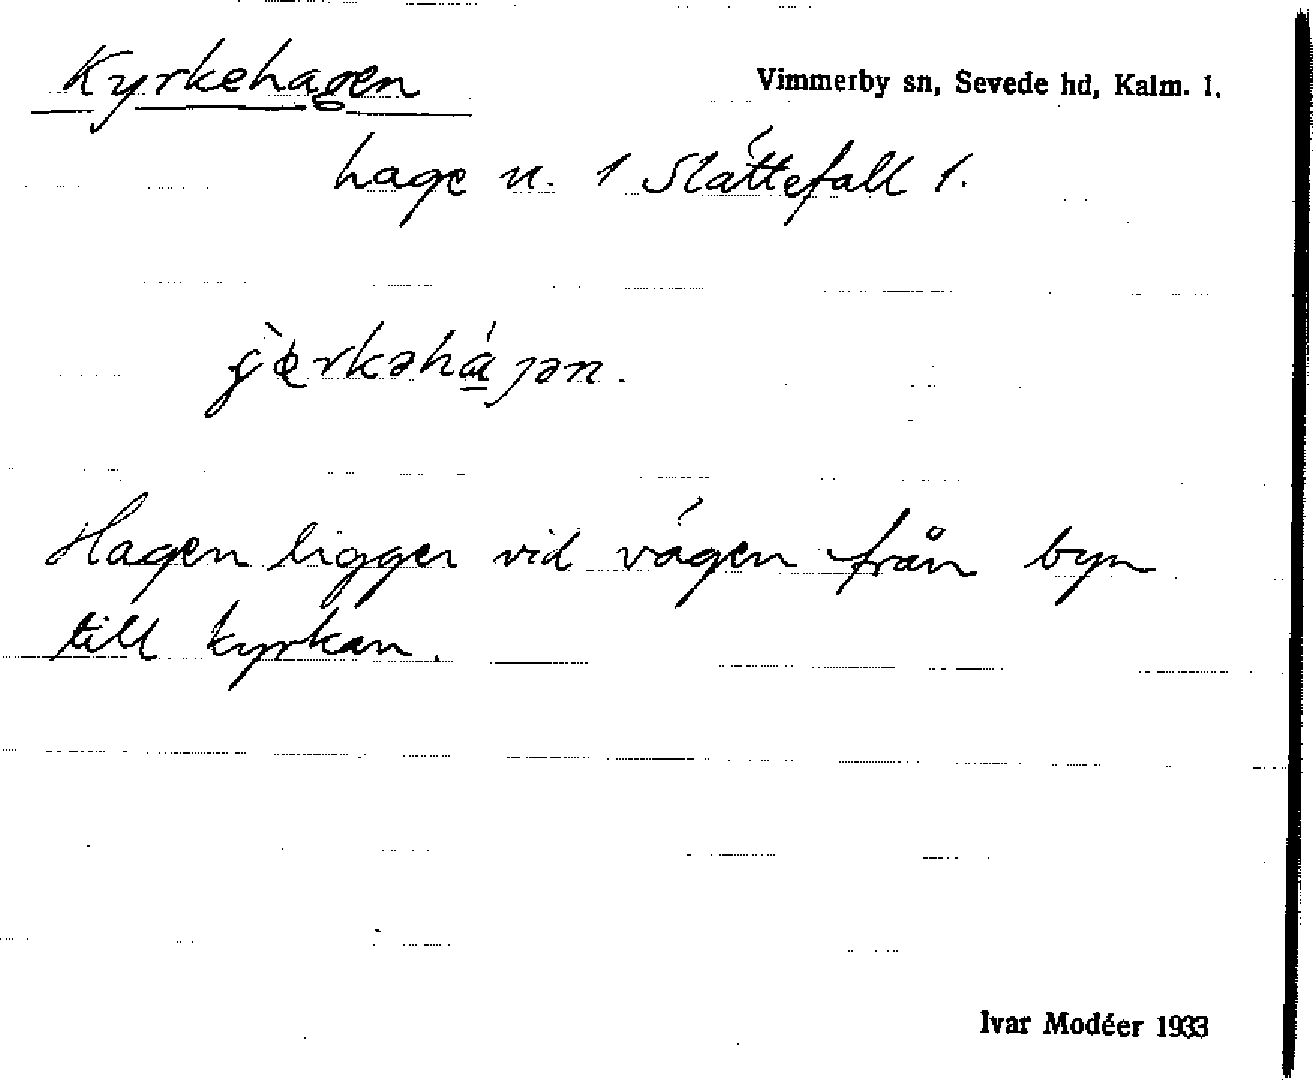 Kyrkehagen
Vimmerby sn, Sevede hd, Kalm. l.
hage n. 1 Slättefall 1.
Hagen ligger vid vägen från byn
till kyrkan.
Ivar Modéer 1933